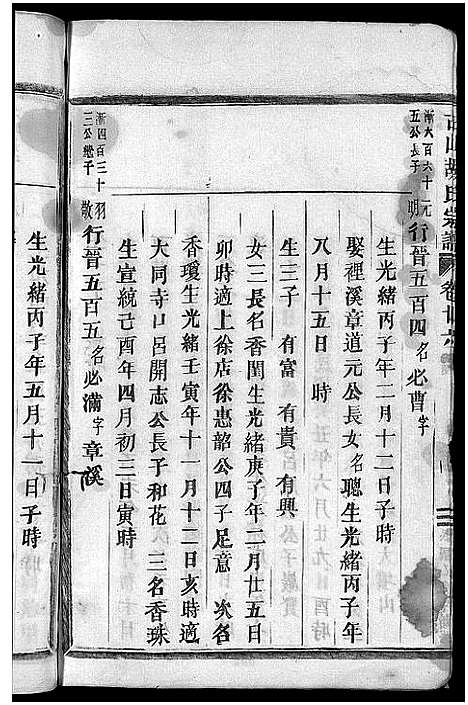 古山胡氏宗譜 卷廿六
漸大百六十
五公長子
元明 行晉五百四 名必曹 字
生光緒丙子年二月十二日子時
娶裡溪章道元公長女名聰生光緒丙子年
八月十五日 時
生三子 有富 有貴 有興
女三長名香閨生光緒庚子年二月廿五日
卯時適上徐店徐惠韶公四子足意 次名
香瓊生光緒壬寅年十一月十二日亥時適
大同寺口呂開志公長子和花 三名香珠
生宣統己酉年四月初三日寅時
漸四百三十
三公繼子
羽敬 行晉五百五 名必滿 字章溪
生光緒丙子年五月十一日子時